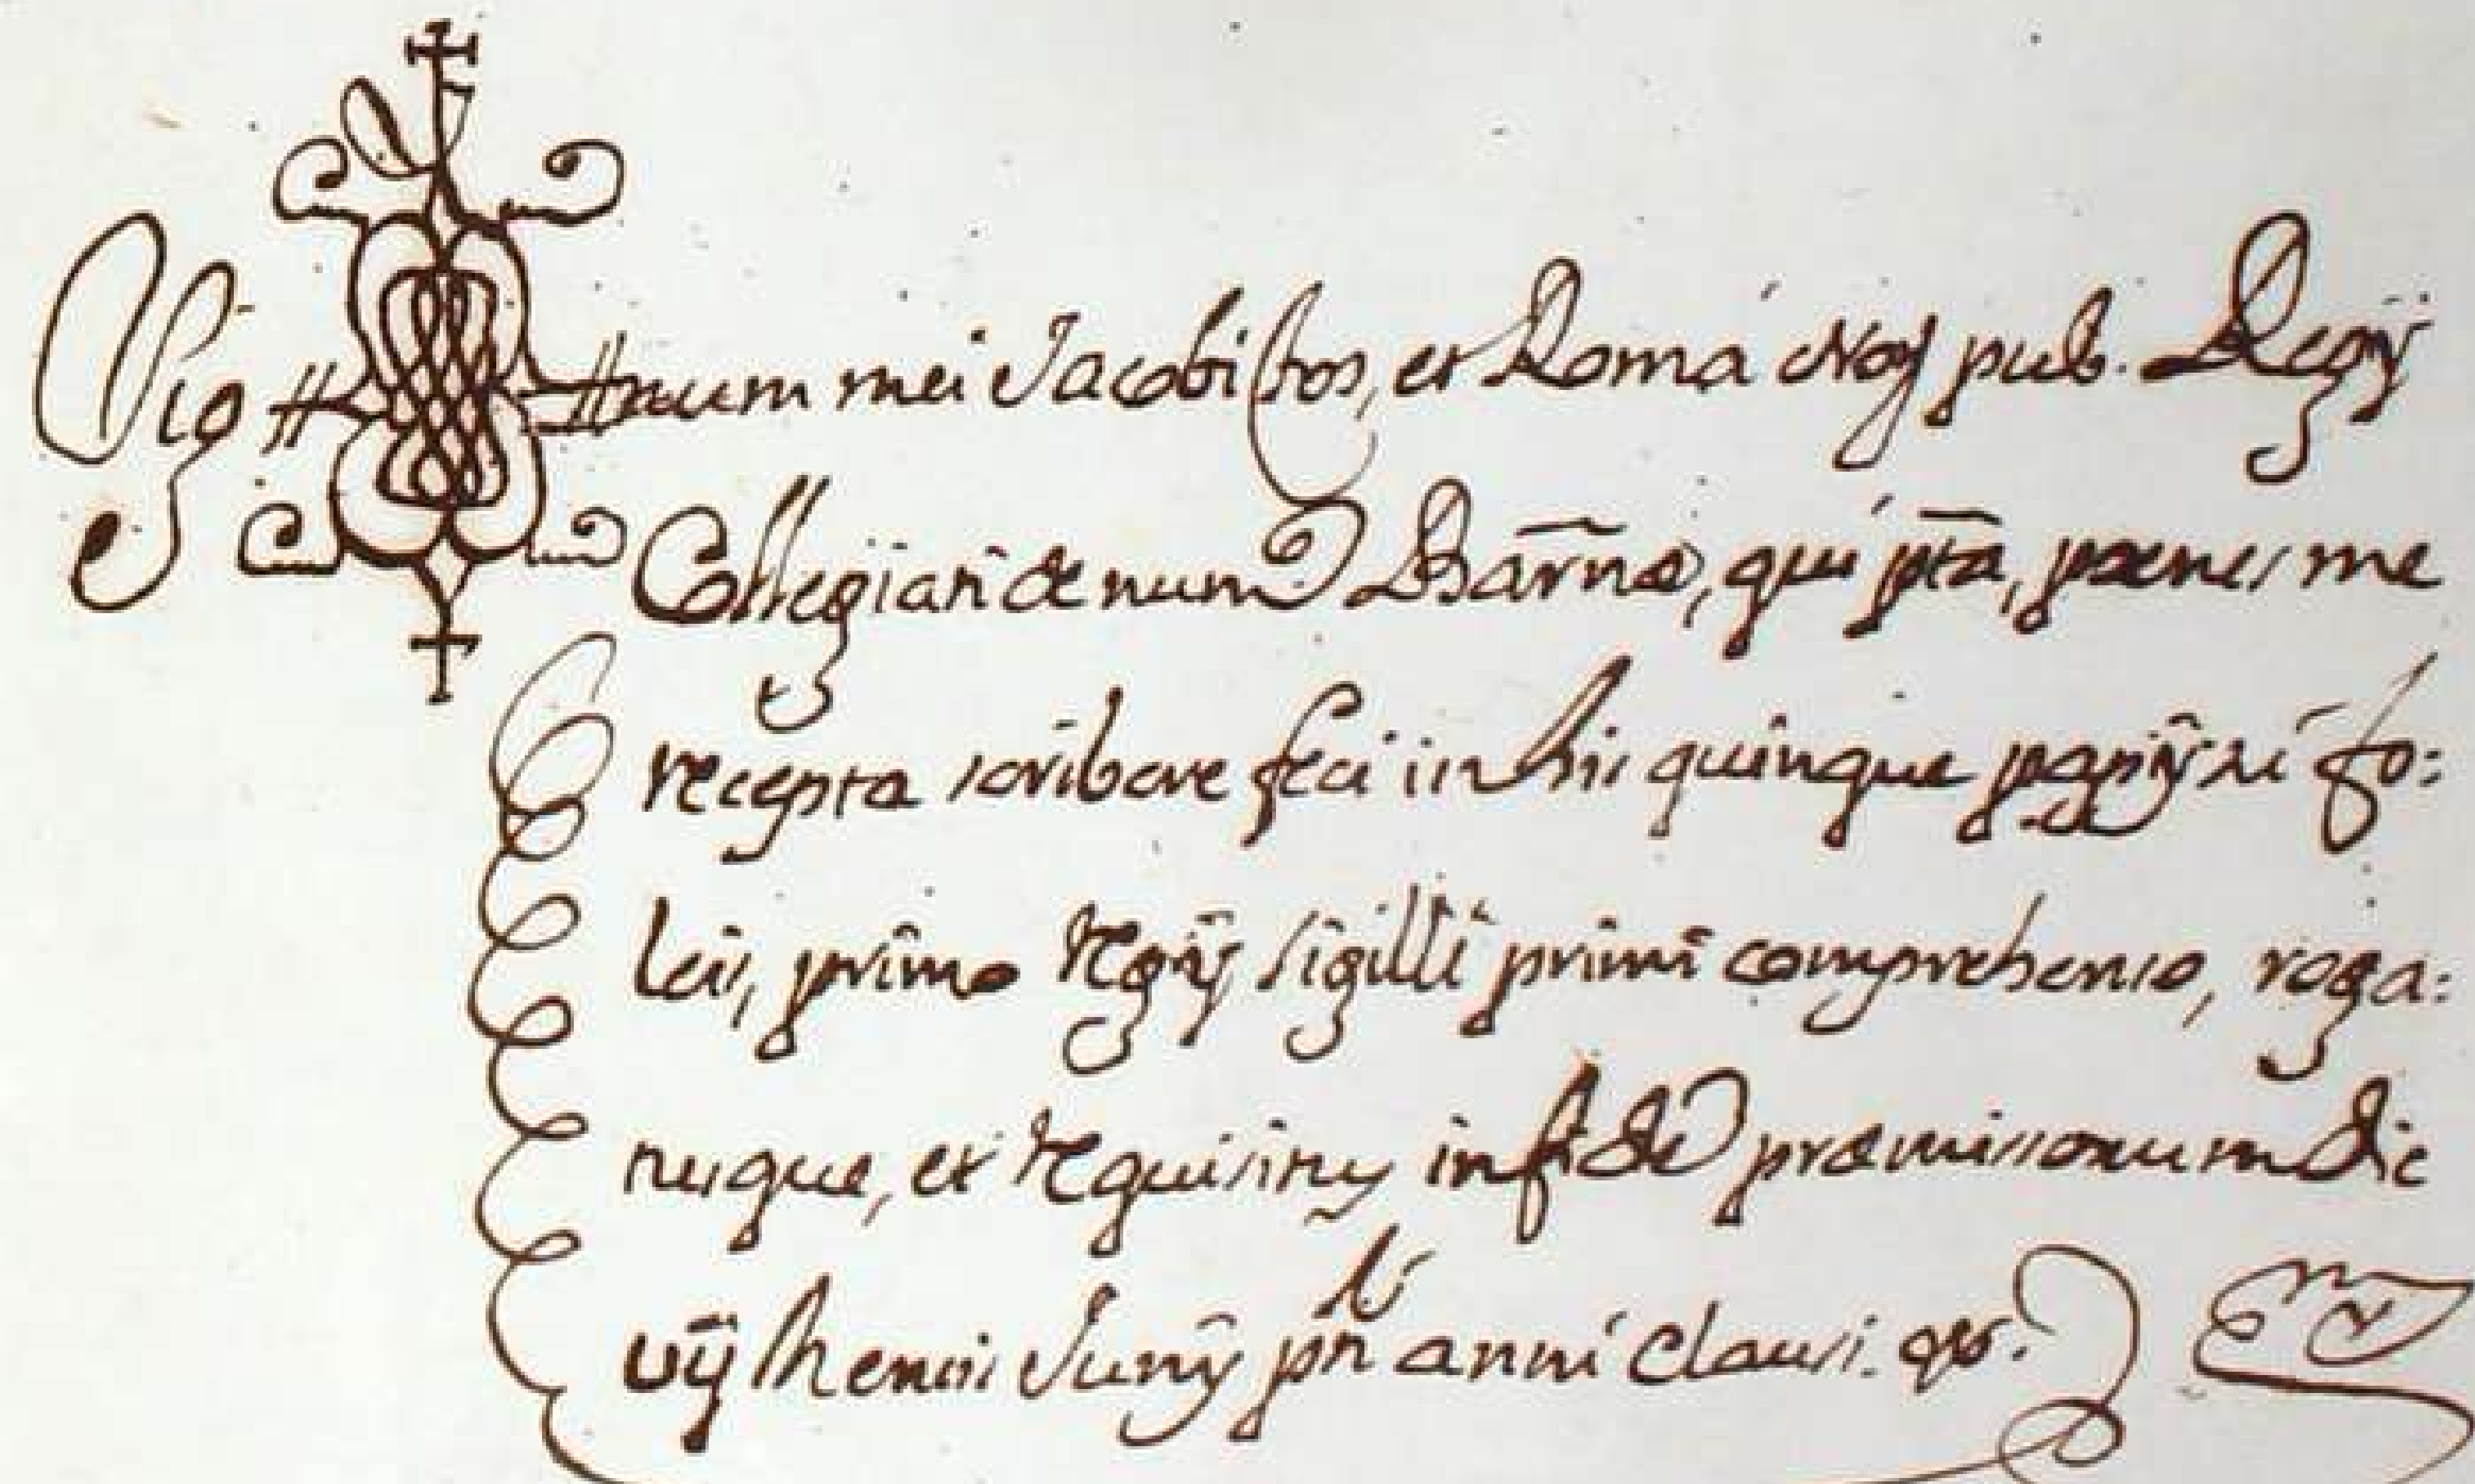 Sig num mei Jacobi Tos, et Romà Noţ pub. Regÿ
Collegiati de num Barñe, qui p̄ta, pœnes me
recepta scribere feci in his quinque papÿri fo:
leis, primo Regÿ sigilli primi comprehenso, roga:
tusque, et requisitus in fidē præmissorum die
vÿ Mensis Junÿ pñ anni clausi.